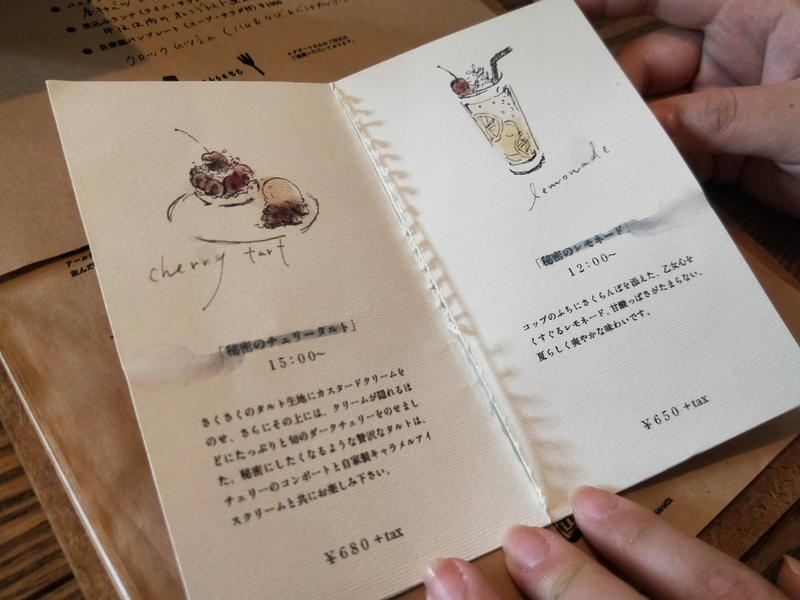 自家製パンプレート(スープ・サラダ付)¥1000
クロックムッシュ
cherry tart
「秘密のチェリータルト」
15:00~
さくさくのタルト生地にカスタードクリームを
のせ、さらにその上には、クリームが隠れるほ
どにたっぷりと旬のダークチェリーをのせまし
た。秘密にしたくなるような贅沢なタルトは、
チェリーのコンポートと自家製キャラメルアイ
スクリームと共にお楽しみ下さい。
¥680+tax
lemonade
「秘密のレモネード」
12:00~
コップのふちにさくらんぼを添えた、乙女心を
くすぐるレモネード。甘酸っぱさがたまらない、
夏らしく爽やかな味わいです。
¥650+tax